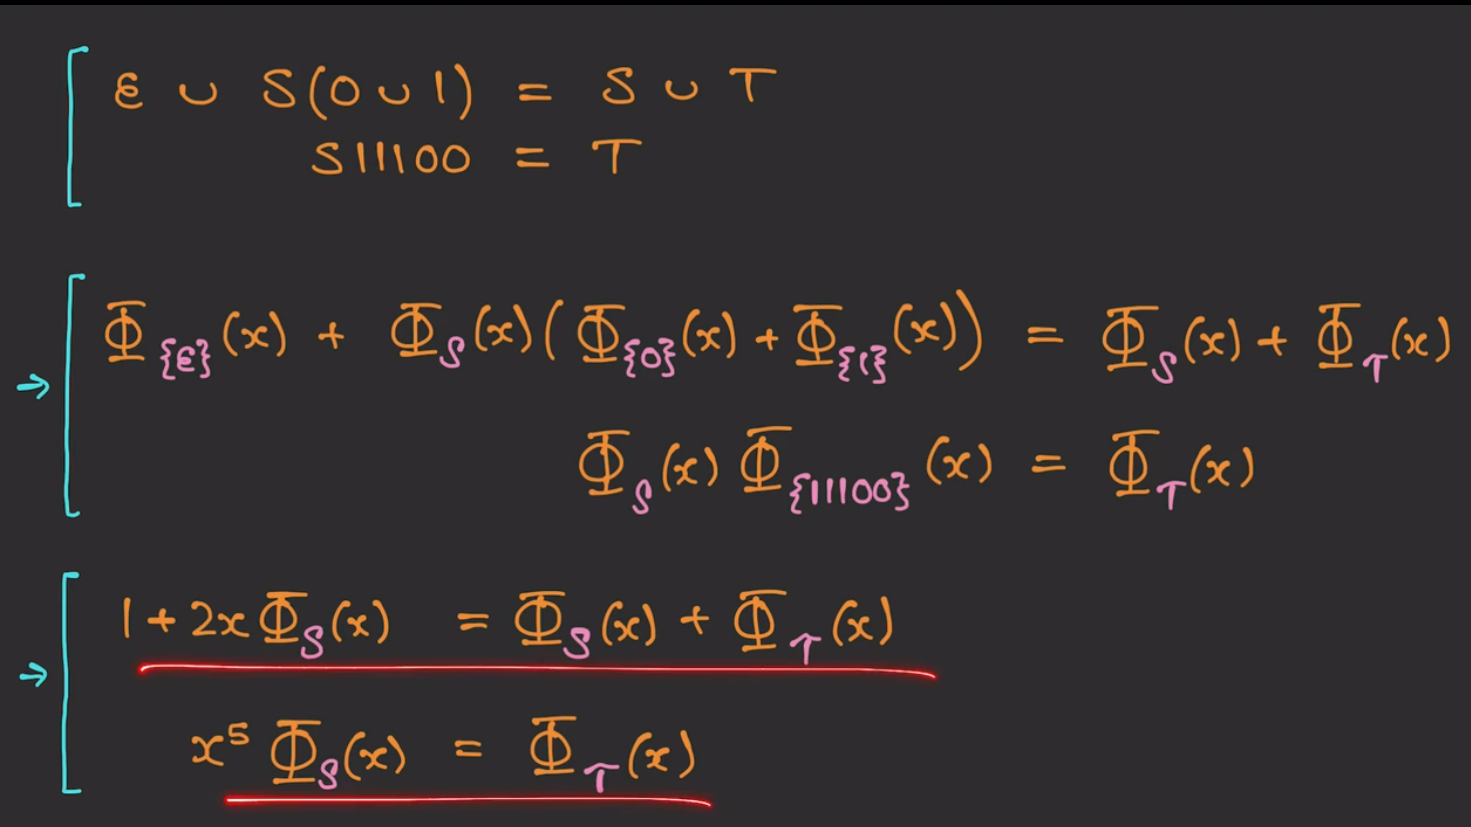 ε ∪ S(0 ∪ 1) = S ∪ T
S11100 = T
Φ_{ε}(x) + Φ_S(x)(Φ_{0}(x) + Φ_{1}(x)) = Φ_S(x) + Φ_T(x)
→
Φ_S(x) Φ_{11100}(x) = Φ_T(x)
1 + 2x Φ_S(x) = Φ_S(x) + Φ_T(x)
→
x⁵ Φ_S(x) = Φ_T(x)